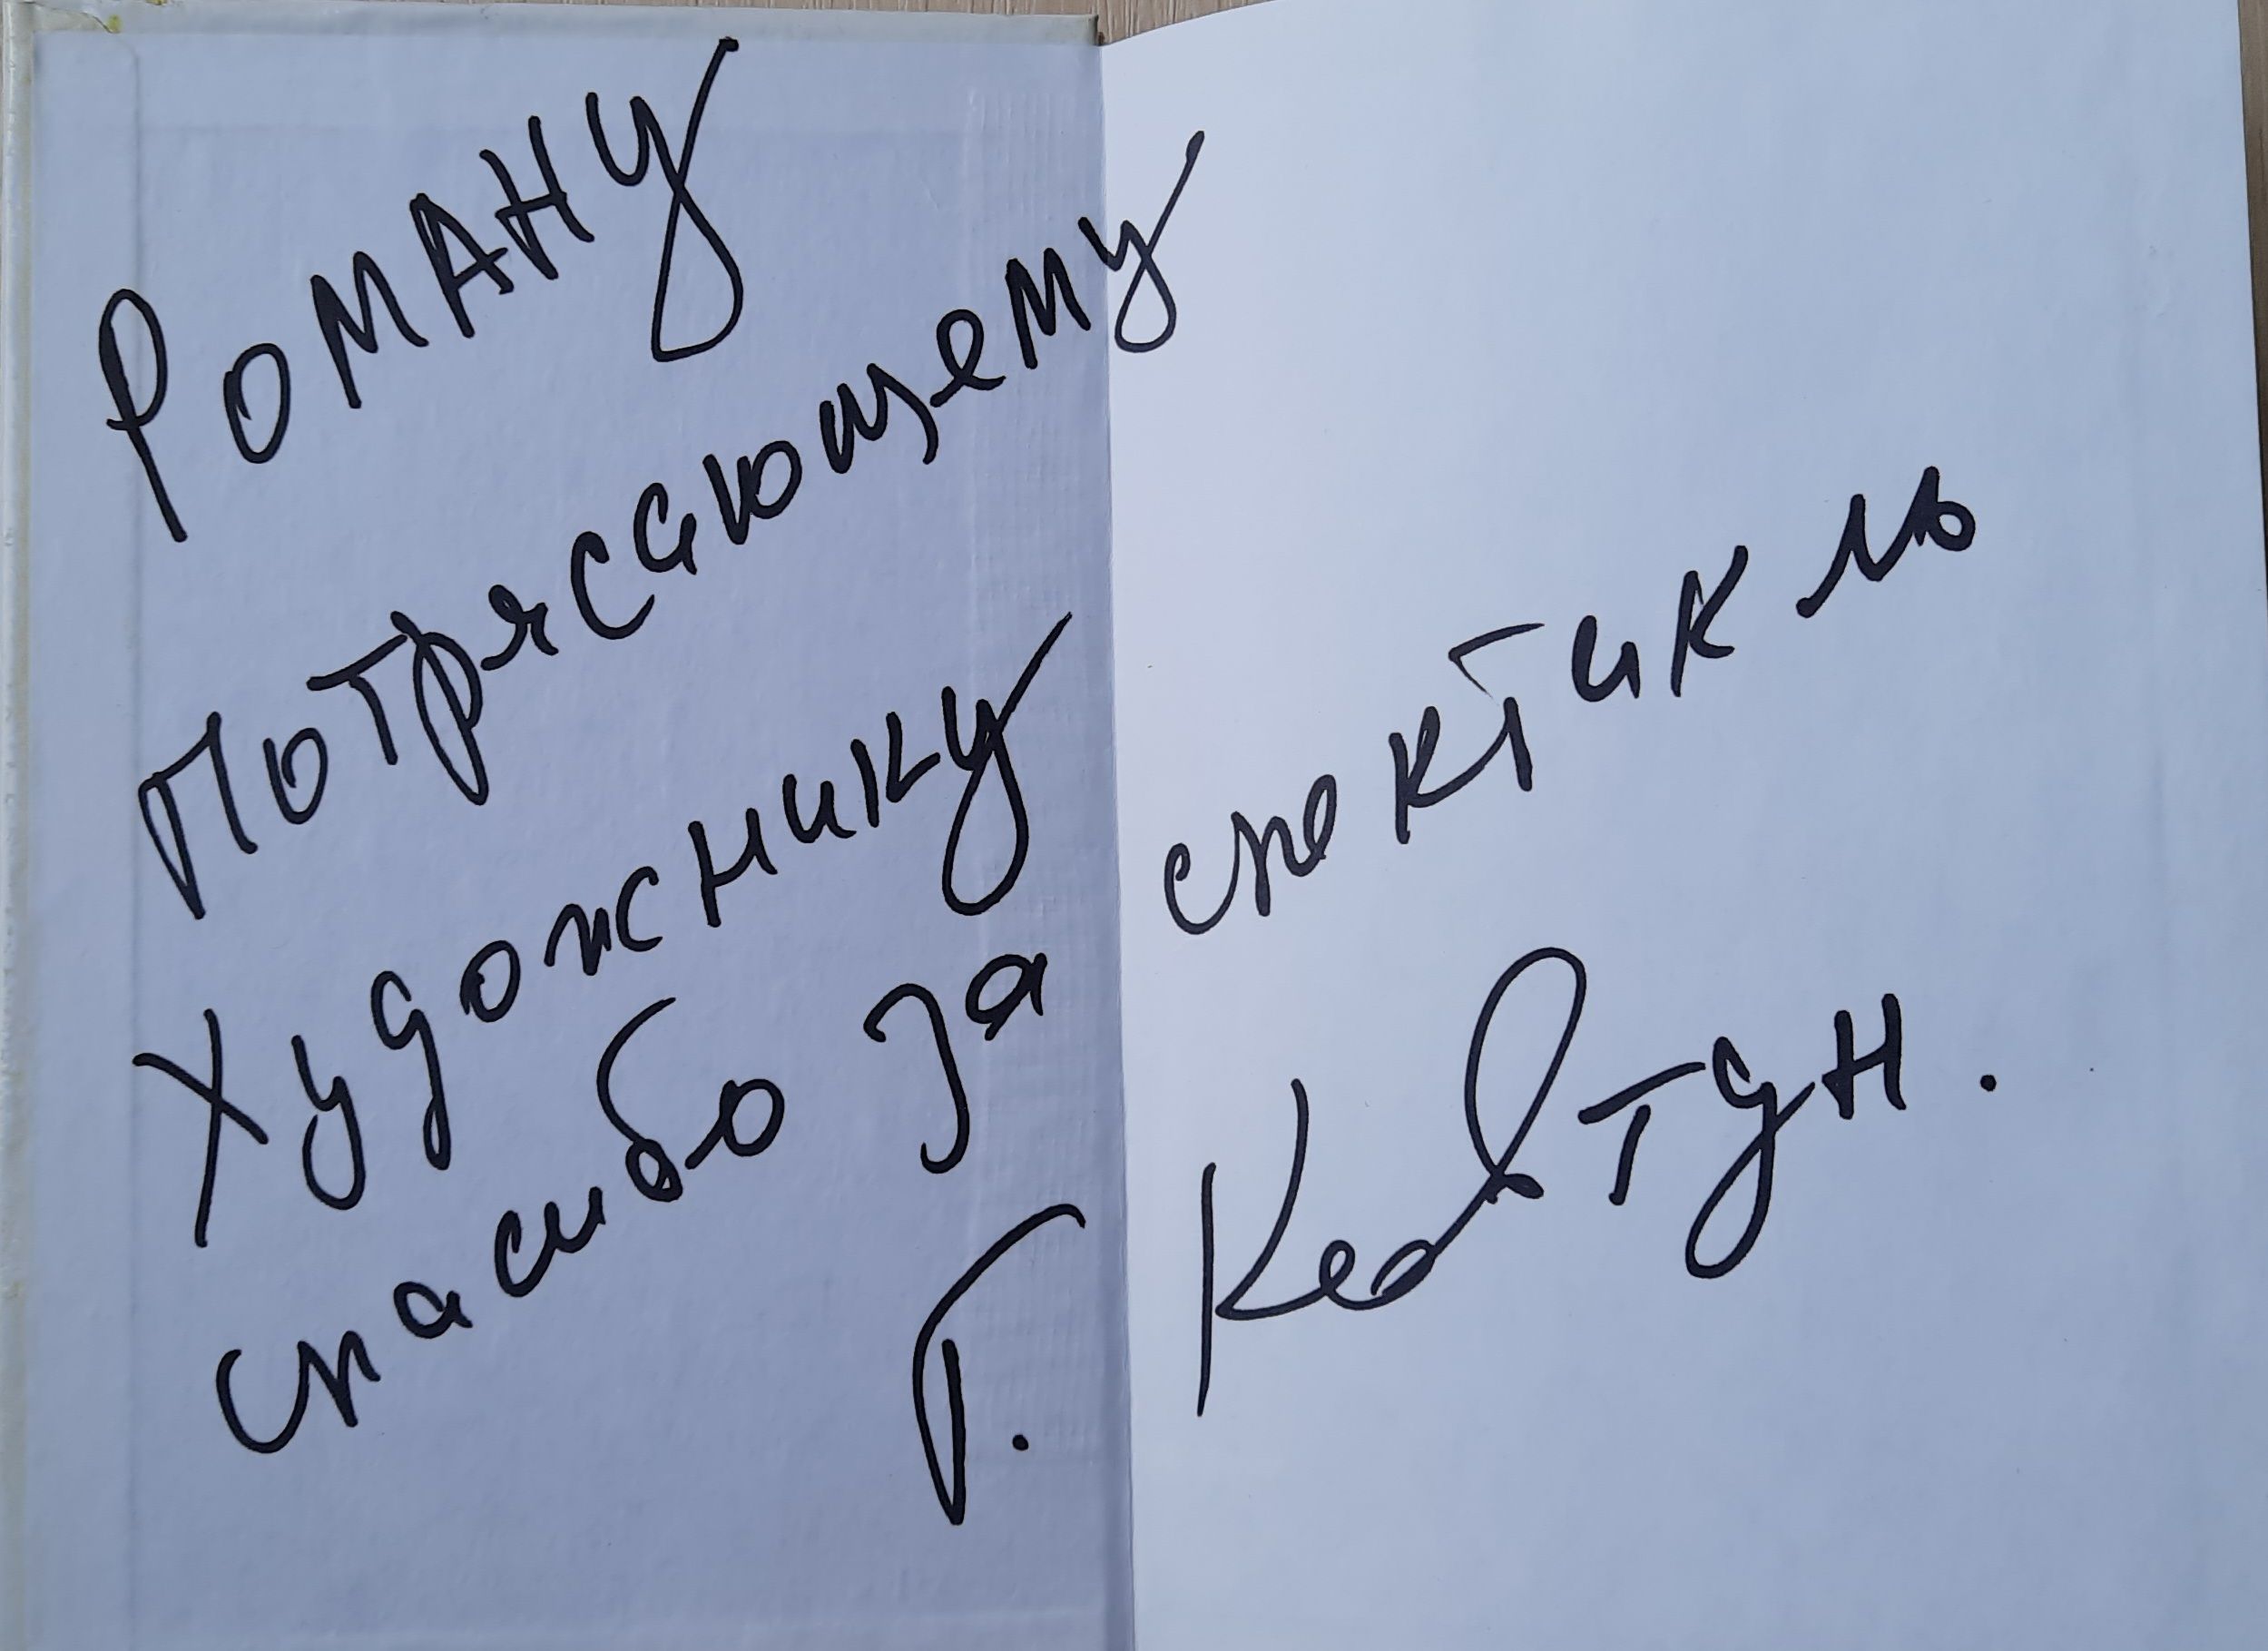 РОМАНУ
Потрясающему
Художнику
спасибо за спектакль
Г. Ковтун.